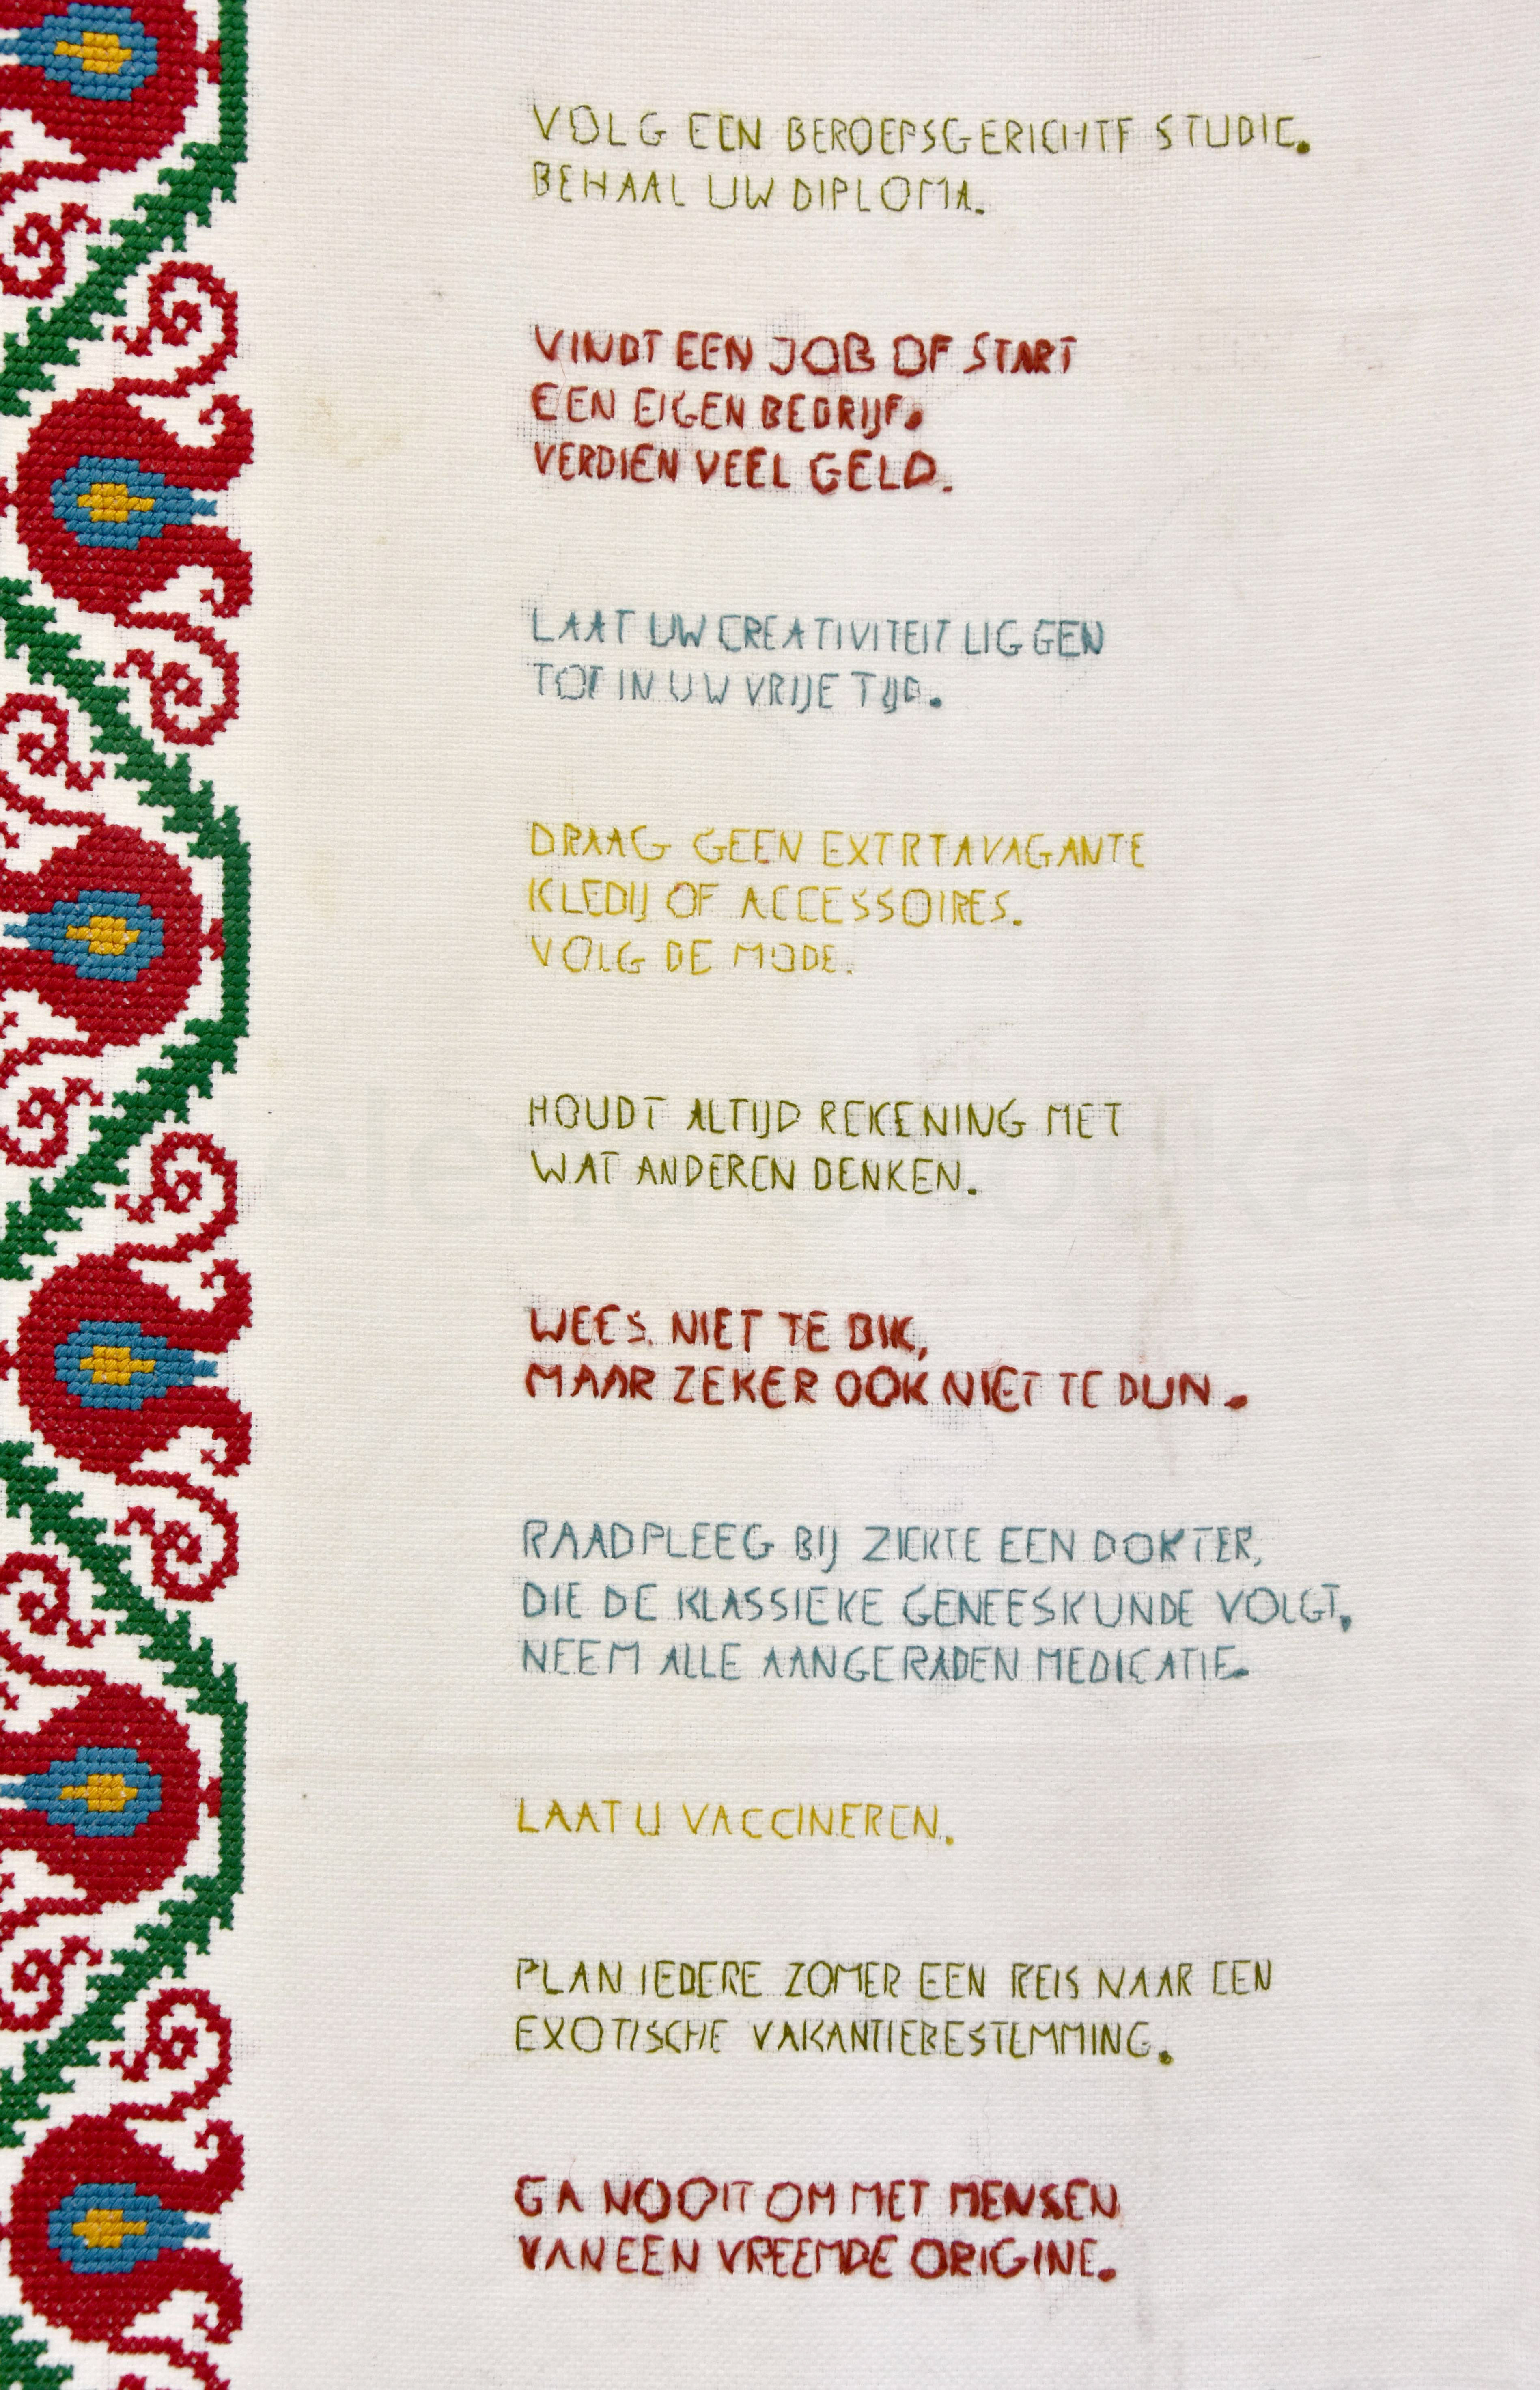 VOLG EEN BEROEPSGERICHTE STUDIE.
BEHAAL UW DIPLOMA.
VINDT EEN JOB OF START
EEN EIGEN BEDRIJF.
VERDIEN VEEL GELD.
LAAT UW CREATIVITEIT LIGGEN
TOT IN UW VRIJE TIJD.
DRAAG GEEN EXTRTAVAGANTE
KLEDIJ OF ACCESSOIRES.
VOLG DE MODE.
HOUDT ALTIJD REKENING MET
WAT ANDEREN DENKEN.
WEES NIET TE DIK,
MAAR ZEKER OOK NIET TE DUN.
RAADPLEEG BIJ ZIEKTE EEN DOKTER,
DIE DE KLASSIEKE GENEESKUNDE VOLGT.
NEEM ALLE AANGERADEN MEDICATIE.
LAAT U VACCINEREN.
PLAN IEDERE ZOMER EEN REIS NAAR EEN
EXOTISCHE VAKANTIEBESTEMMING.
GA NOOIT OM MET MENSEN
VAN EEN VREEMDE ORIGINE.